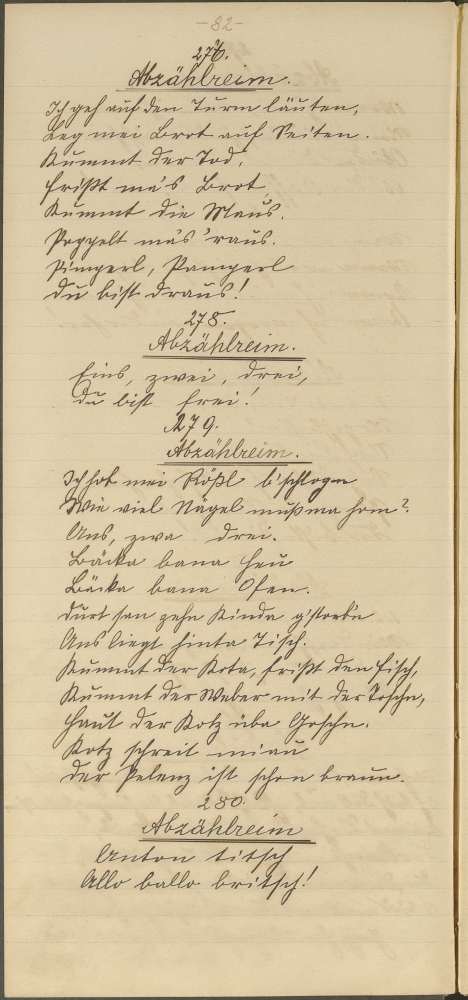 -82-
277.
Abzählreim.
Ich geh auf den Turm läuten,
Leg mei Brot auf Seiten.
Kummt der Tod,
Frißt ma's Brot,
Kummt die Maus.
Poppelt ma's 'raus.
Pimperl, Pamperl
Du bist draus!
278.
Abzählreim.
Eins, zwei, drei,
Du bist frei!
279.
Abzählreim.
Ich hob mei Rößl b'schlogn
Wie viel Nägel muß ma hom?
Ans, zwa drei.
Bäcka bana Heu
Bäcka bana Ofen.
Durt san zehn Kinda g'storb'n
Ans liegt hinta Tisch.
Kummt der Kota, frißt den Fisch,
Kummt der Weber mit der Toschn,
Haut der Kotz üba Goschn.
Kotz schreit miau
Der ist schon braun.
280.
Abzählreim
Anton titsch
Allo ballo britsch!